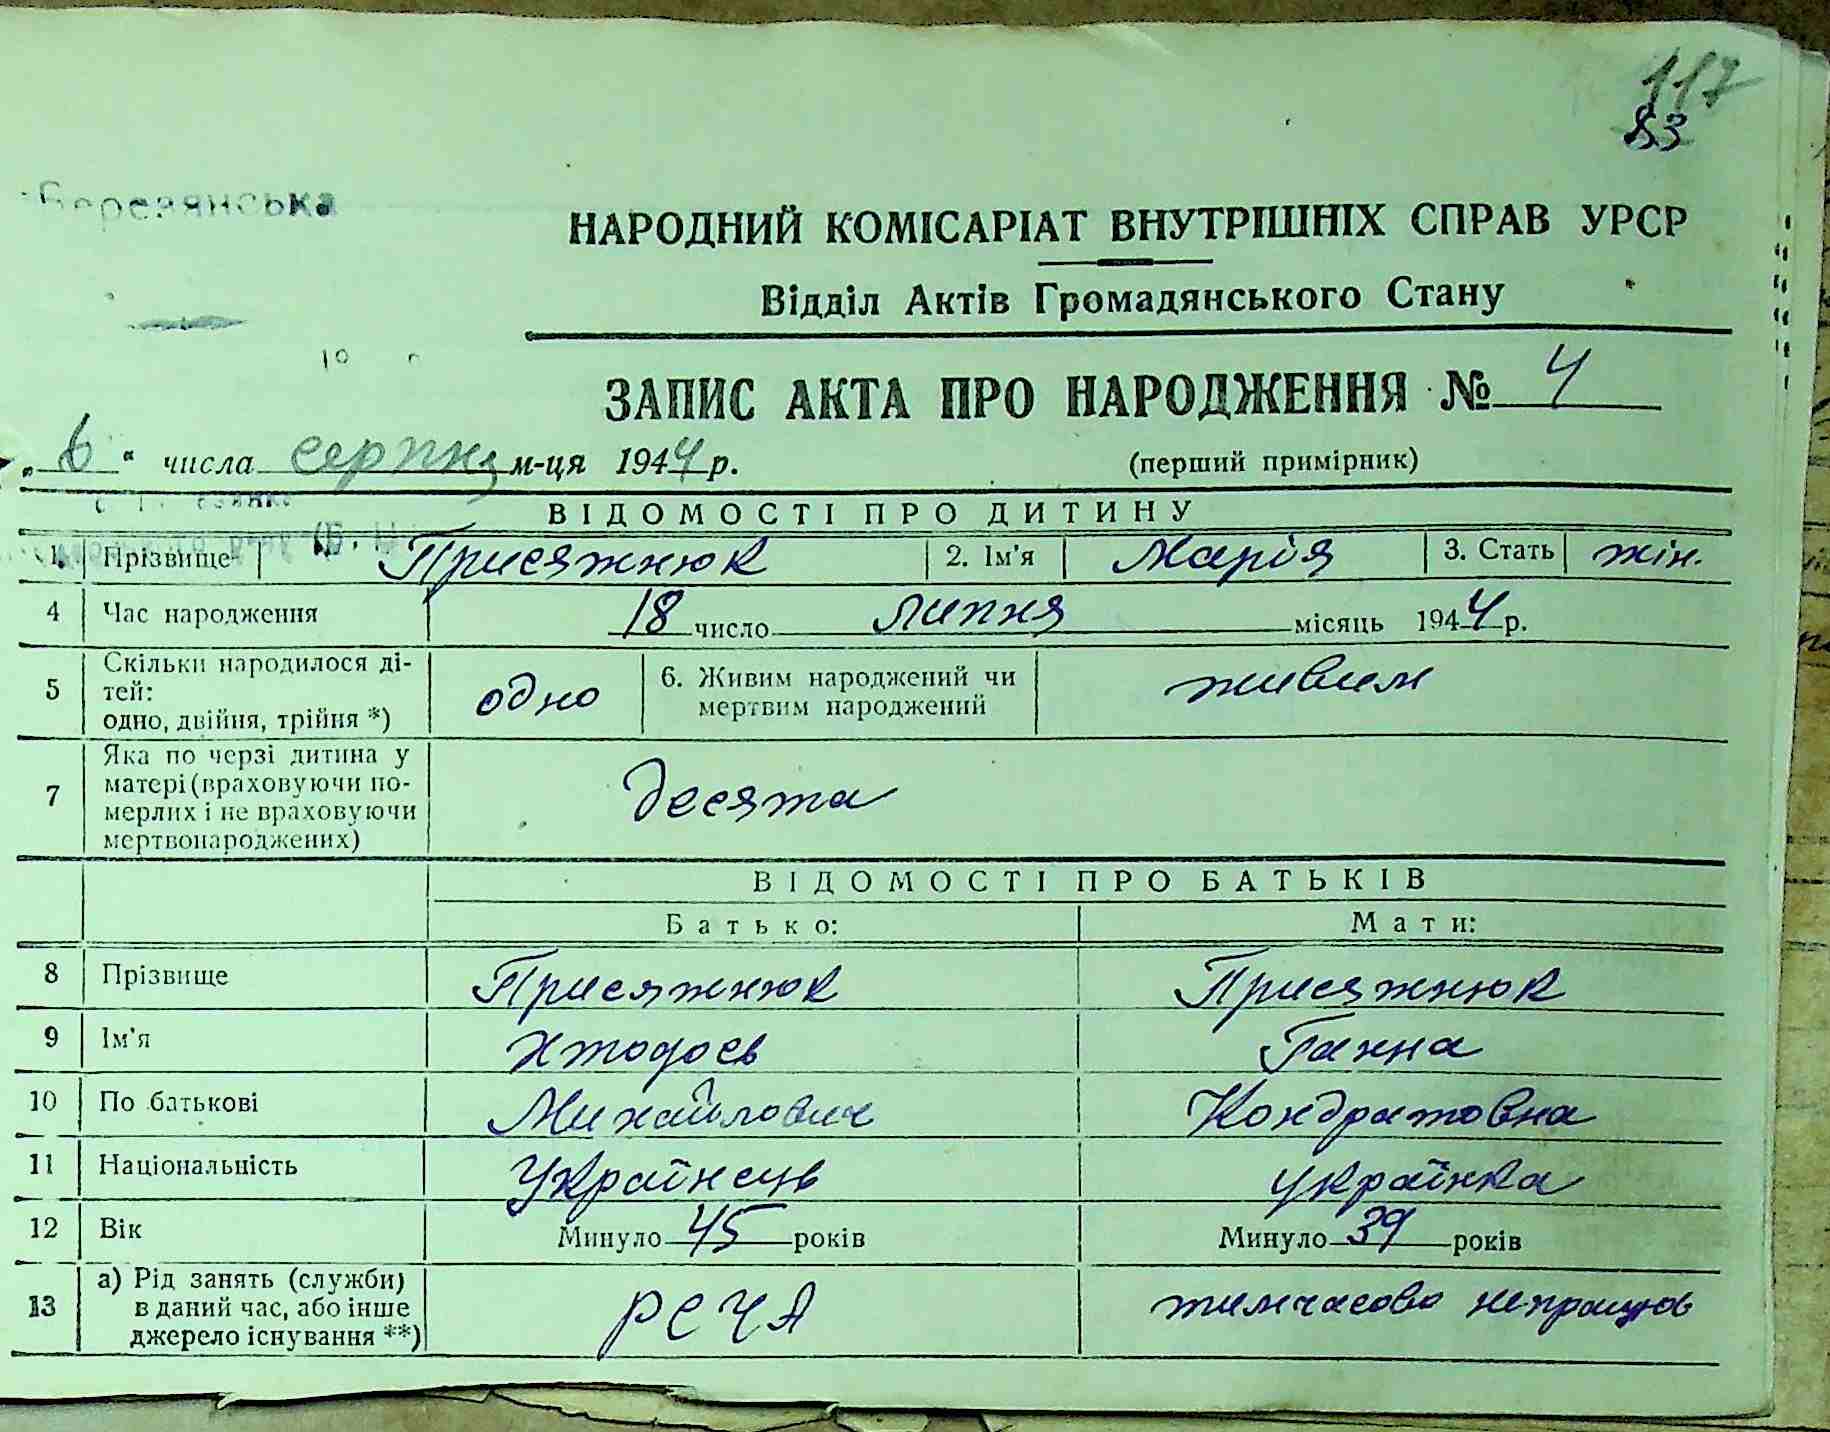 117
83
Березянська
НАРОДНИЙ КОМІСАРІАТ ВНУТРІШНІХ СПРАВ УРСР
Відділ Актів Громадянського Стану
ЗАПИС АКТА ПРО НАРОДЖЕННЯ № 4
„6“ числа серпня м-ця 1944 р. (перший примірник)
ВІДОМОСТІ ПРО ДИТИНУ
1. Прізвище Присяжнюк 2. Ім'я Марія 3. Стать жін.
4 Час народження 18 число липня місяць 1944 р.
5 Скільки народилося ді-
тей:
одно, двійня, трійня *) одно 6. Живим народжений чи
мертвим народжений живим
7 Яка по черзі дитина у
матері (враховуючи по-
мерлих і не враховуючи
мертвонароджених) десята
ВІДОМОСТІ ПРО БАТЬКІВ
Батько: Мати:
8 Прізвище Присяжнюк Присяжнюк
9 Ім'я Хтодось Ганна
10 По батькові Михайлович Кондратовна
11 Національність Українець українка
12 Вік Минуло 45 років Минуло 39 років
13 а) Рід занять (служби)
в даний час, або інше
джерело існування **) РСЧА тимчасово непрацює